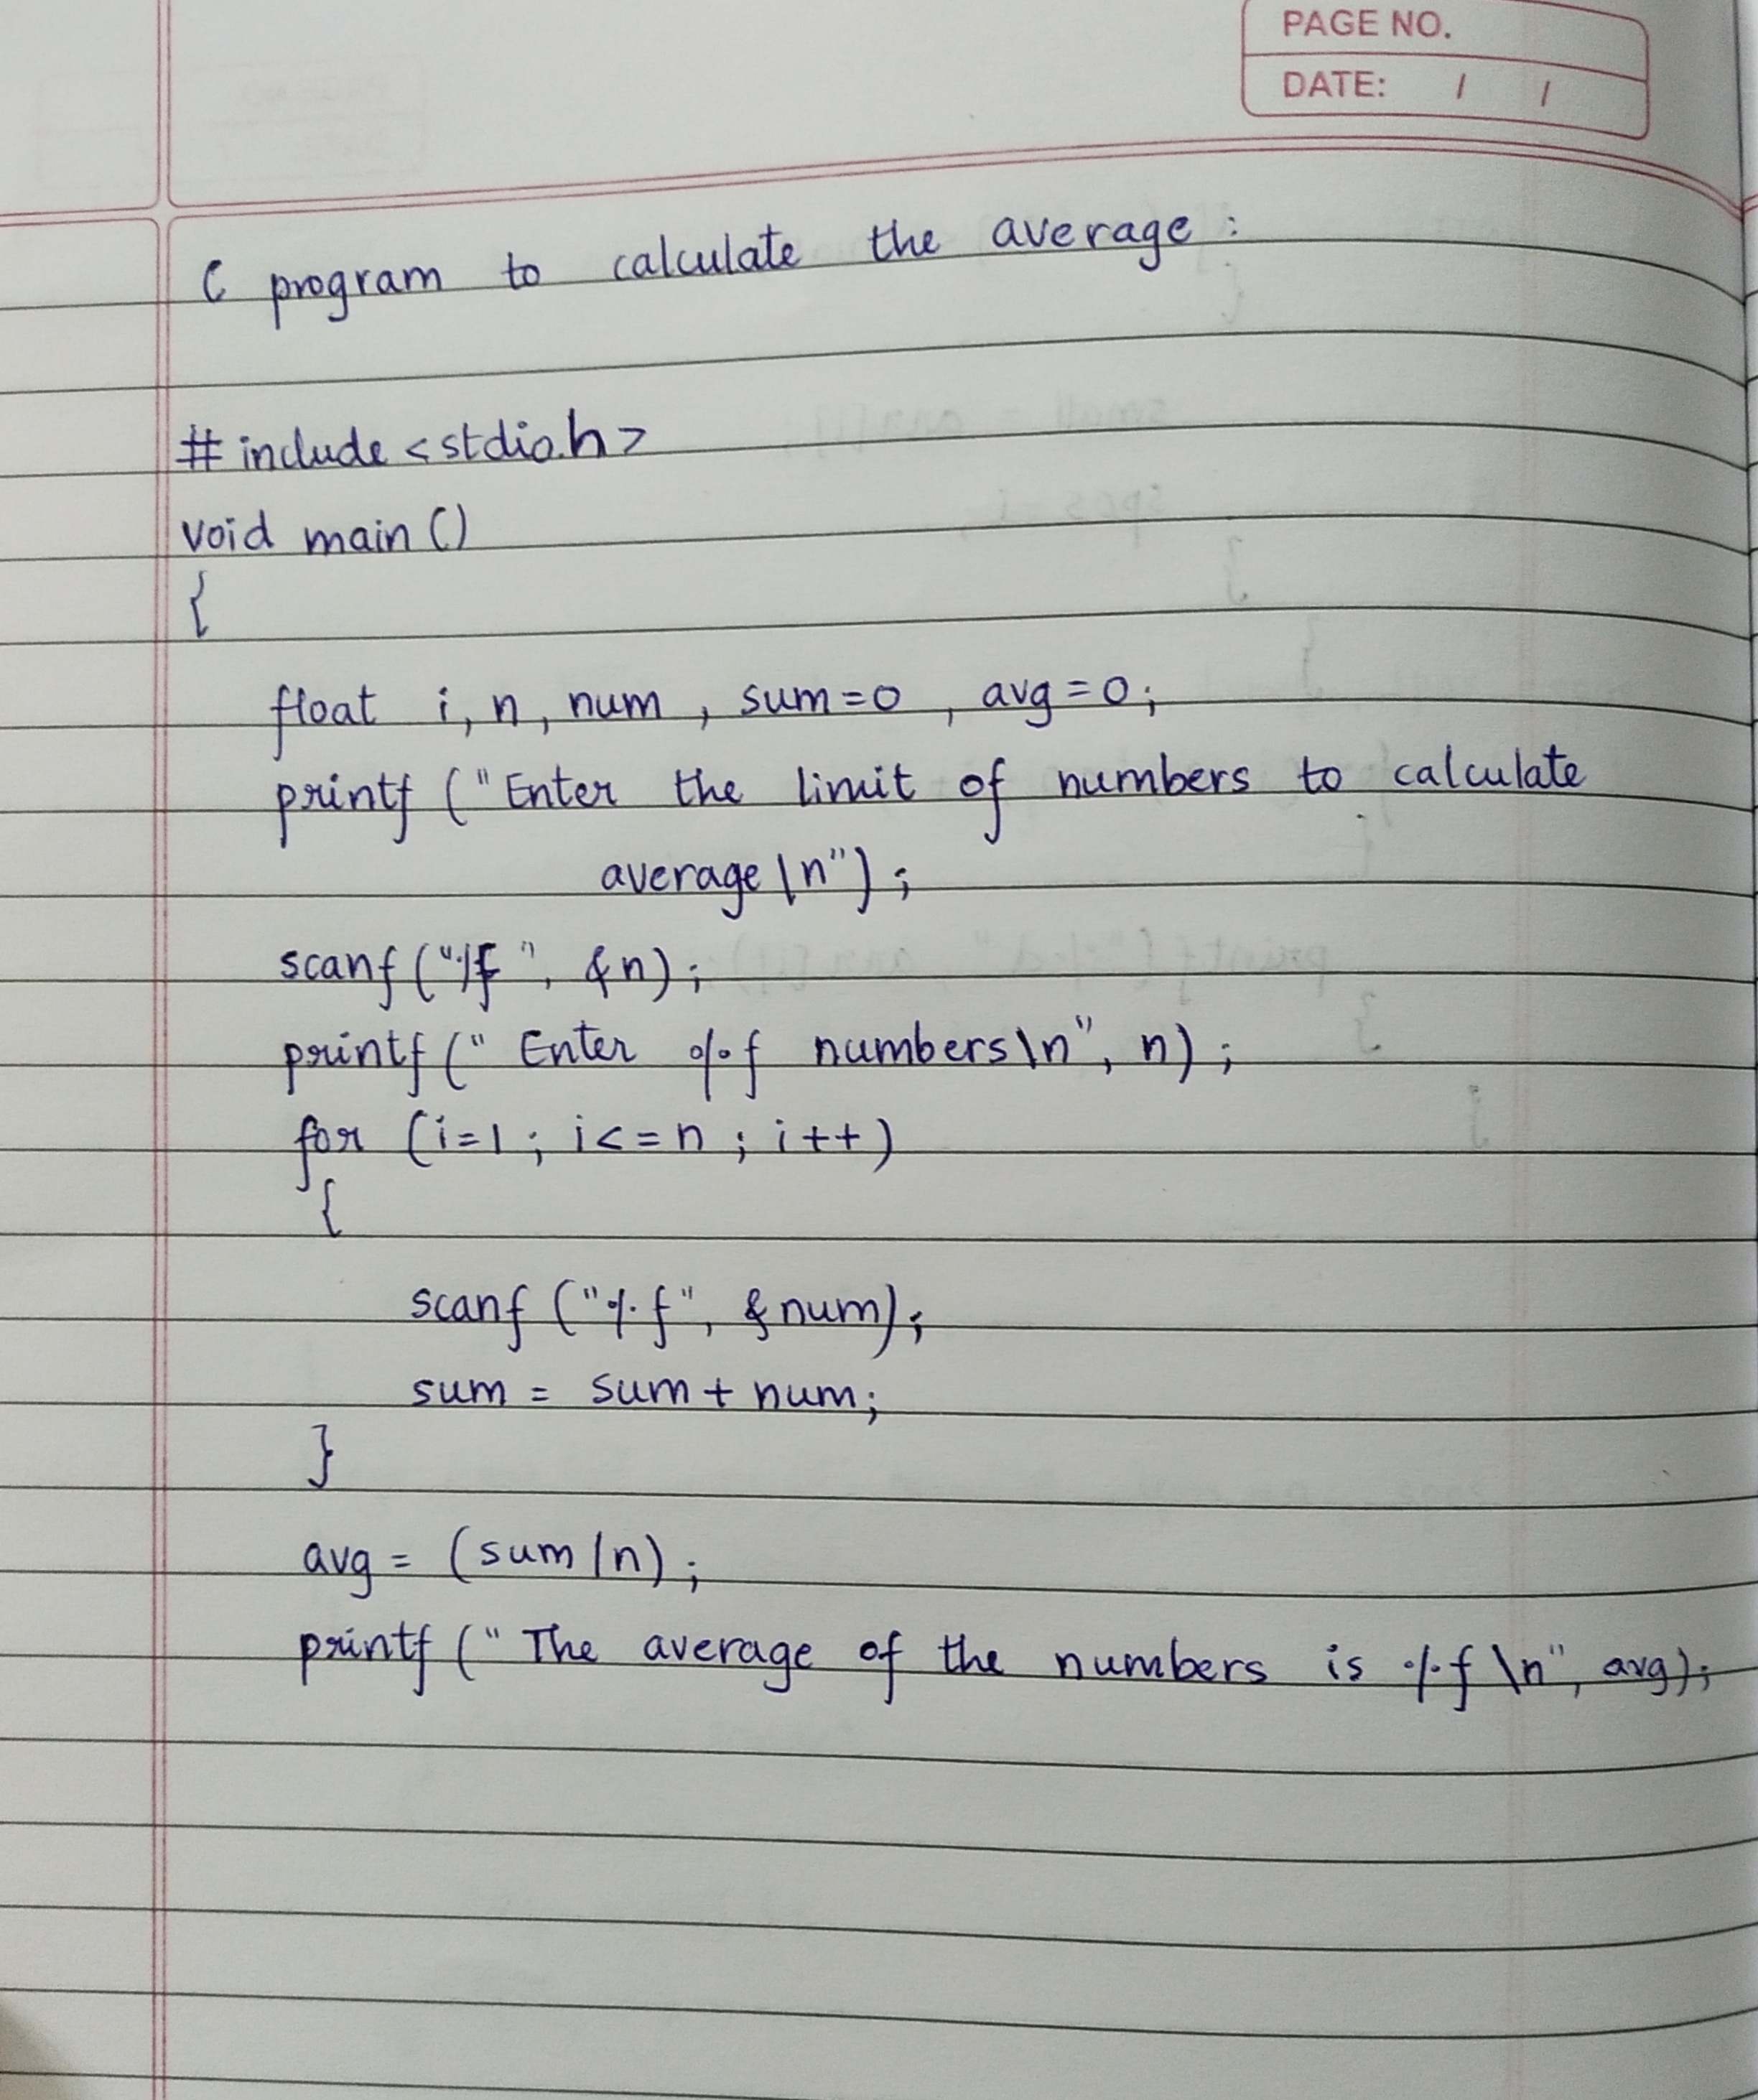 PAGE NO.
DATE: / /
C program to calculate the average :
# include <stdio.h>
void main ()
{
float i, n, num, sum=0, avg=0;
printf ("Enter the limit of numbers to calculate
average \n");
scanf ("%f", &n);
printf (" Enter %f numbers\n", n);
for (i=1; i<=n; i++)
{
scanf ("%f", &num);
sum = sum + num;
}
avg = (sum/n);
printf (" The average of the numbers is %f \n", avg);